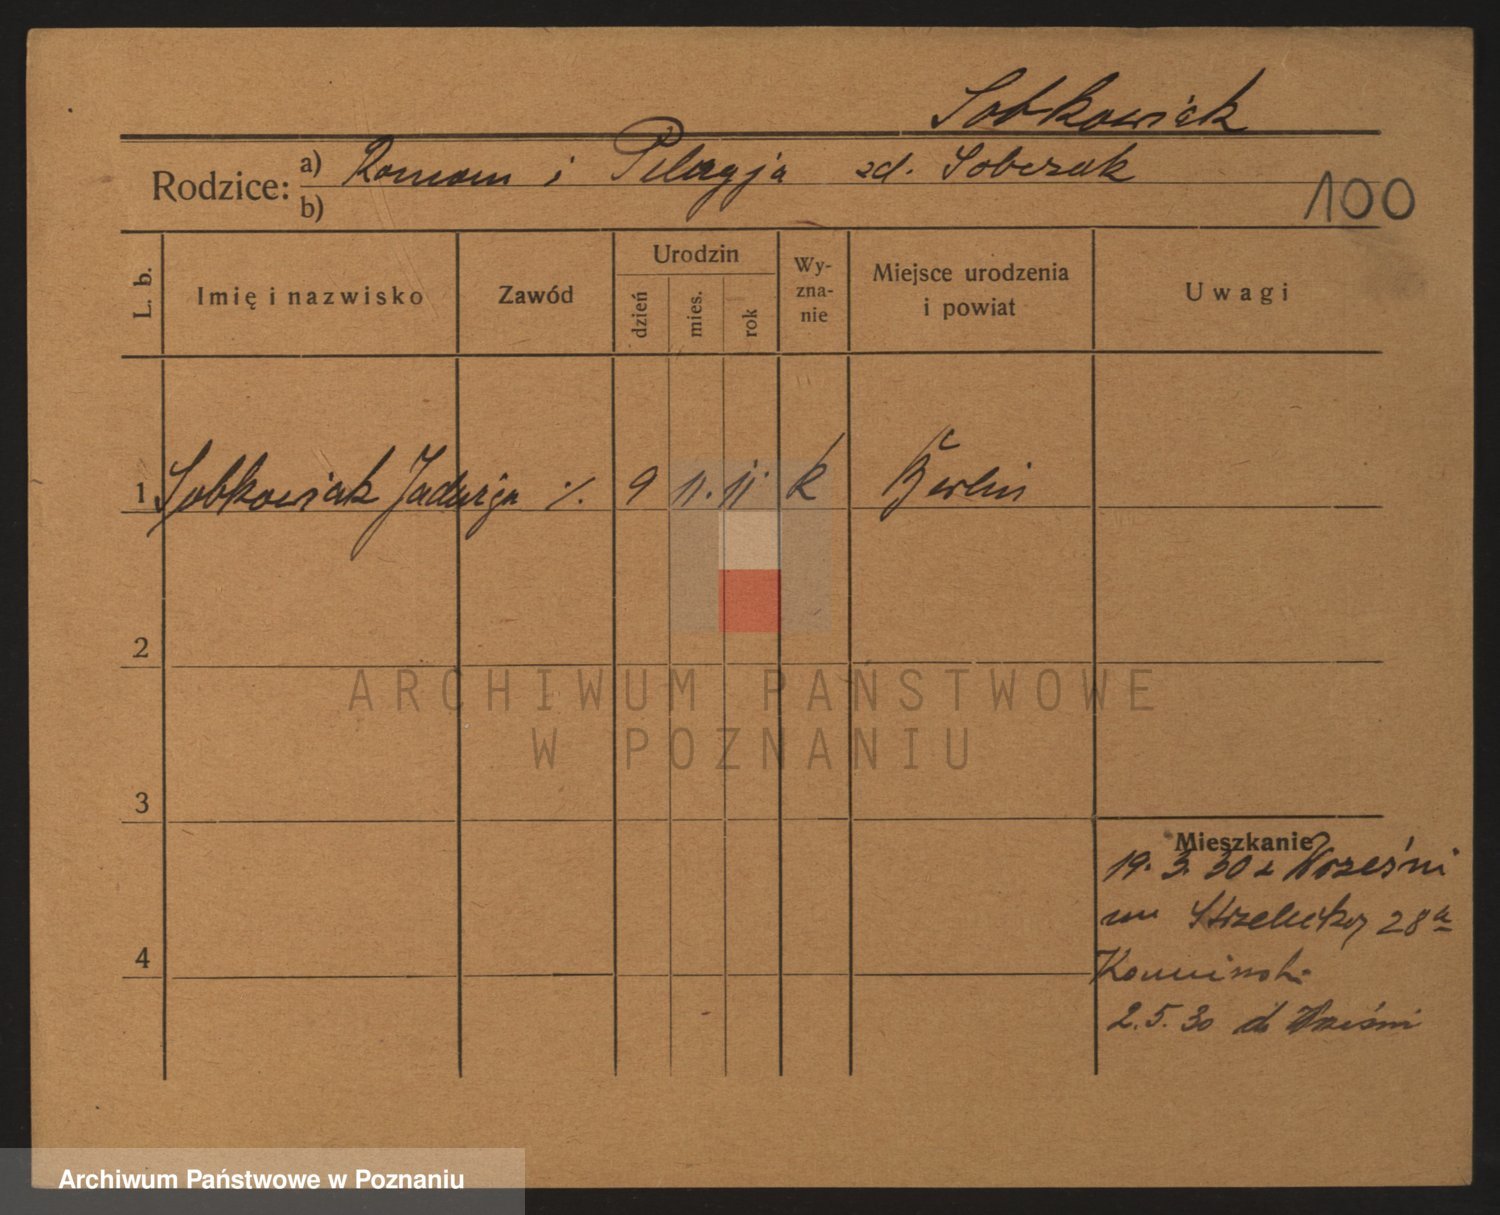 Sobkowiak
Rodzice: a) Roman i Pelagja zd. Sobczak
b)
100
L. b. Imię i nazwisko Zawód Urodzin dzień mies. rok Wy-zna-nie Miejsce urodzenia i powiat Uwagi
1 Sobkowiak Jadwiga ./. 9 11. 11. k Berlin
2
ARCHIWUM PAŃSTWOWE
W POZNANIU
3
Mieszkanie
19. 3. 30 z Wrześni
Strzelecka 28a
4
2. 5. 30 do Wrześni
Archiwum Państwowe w Poznaniu